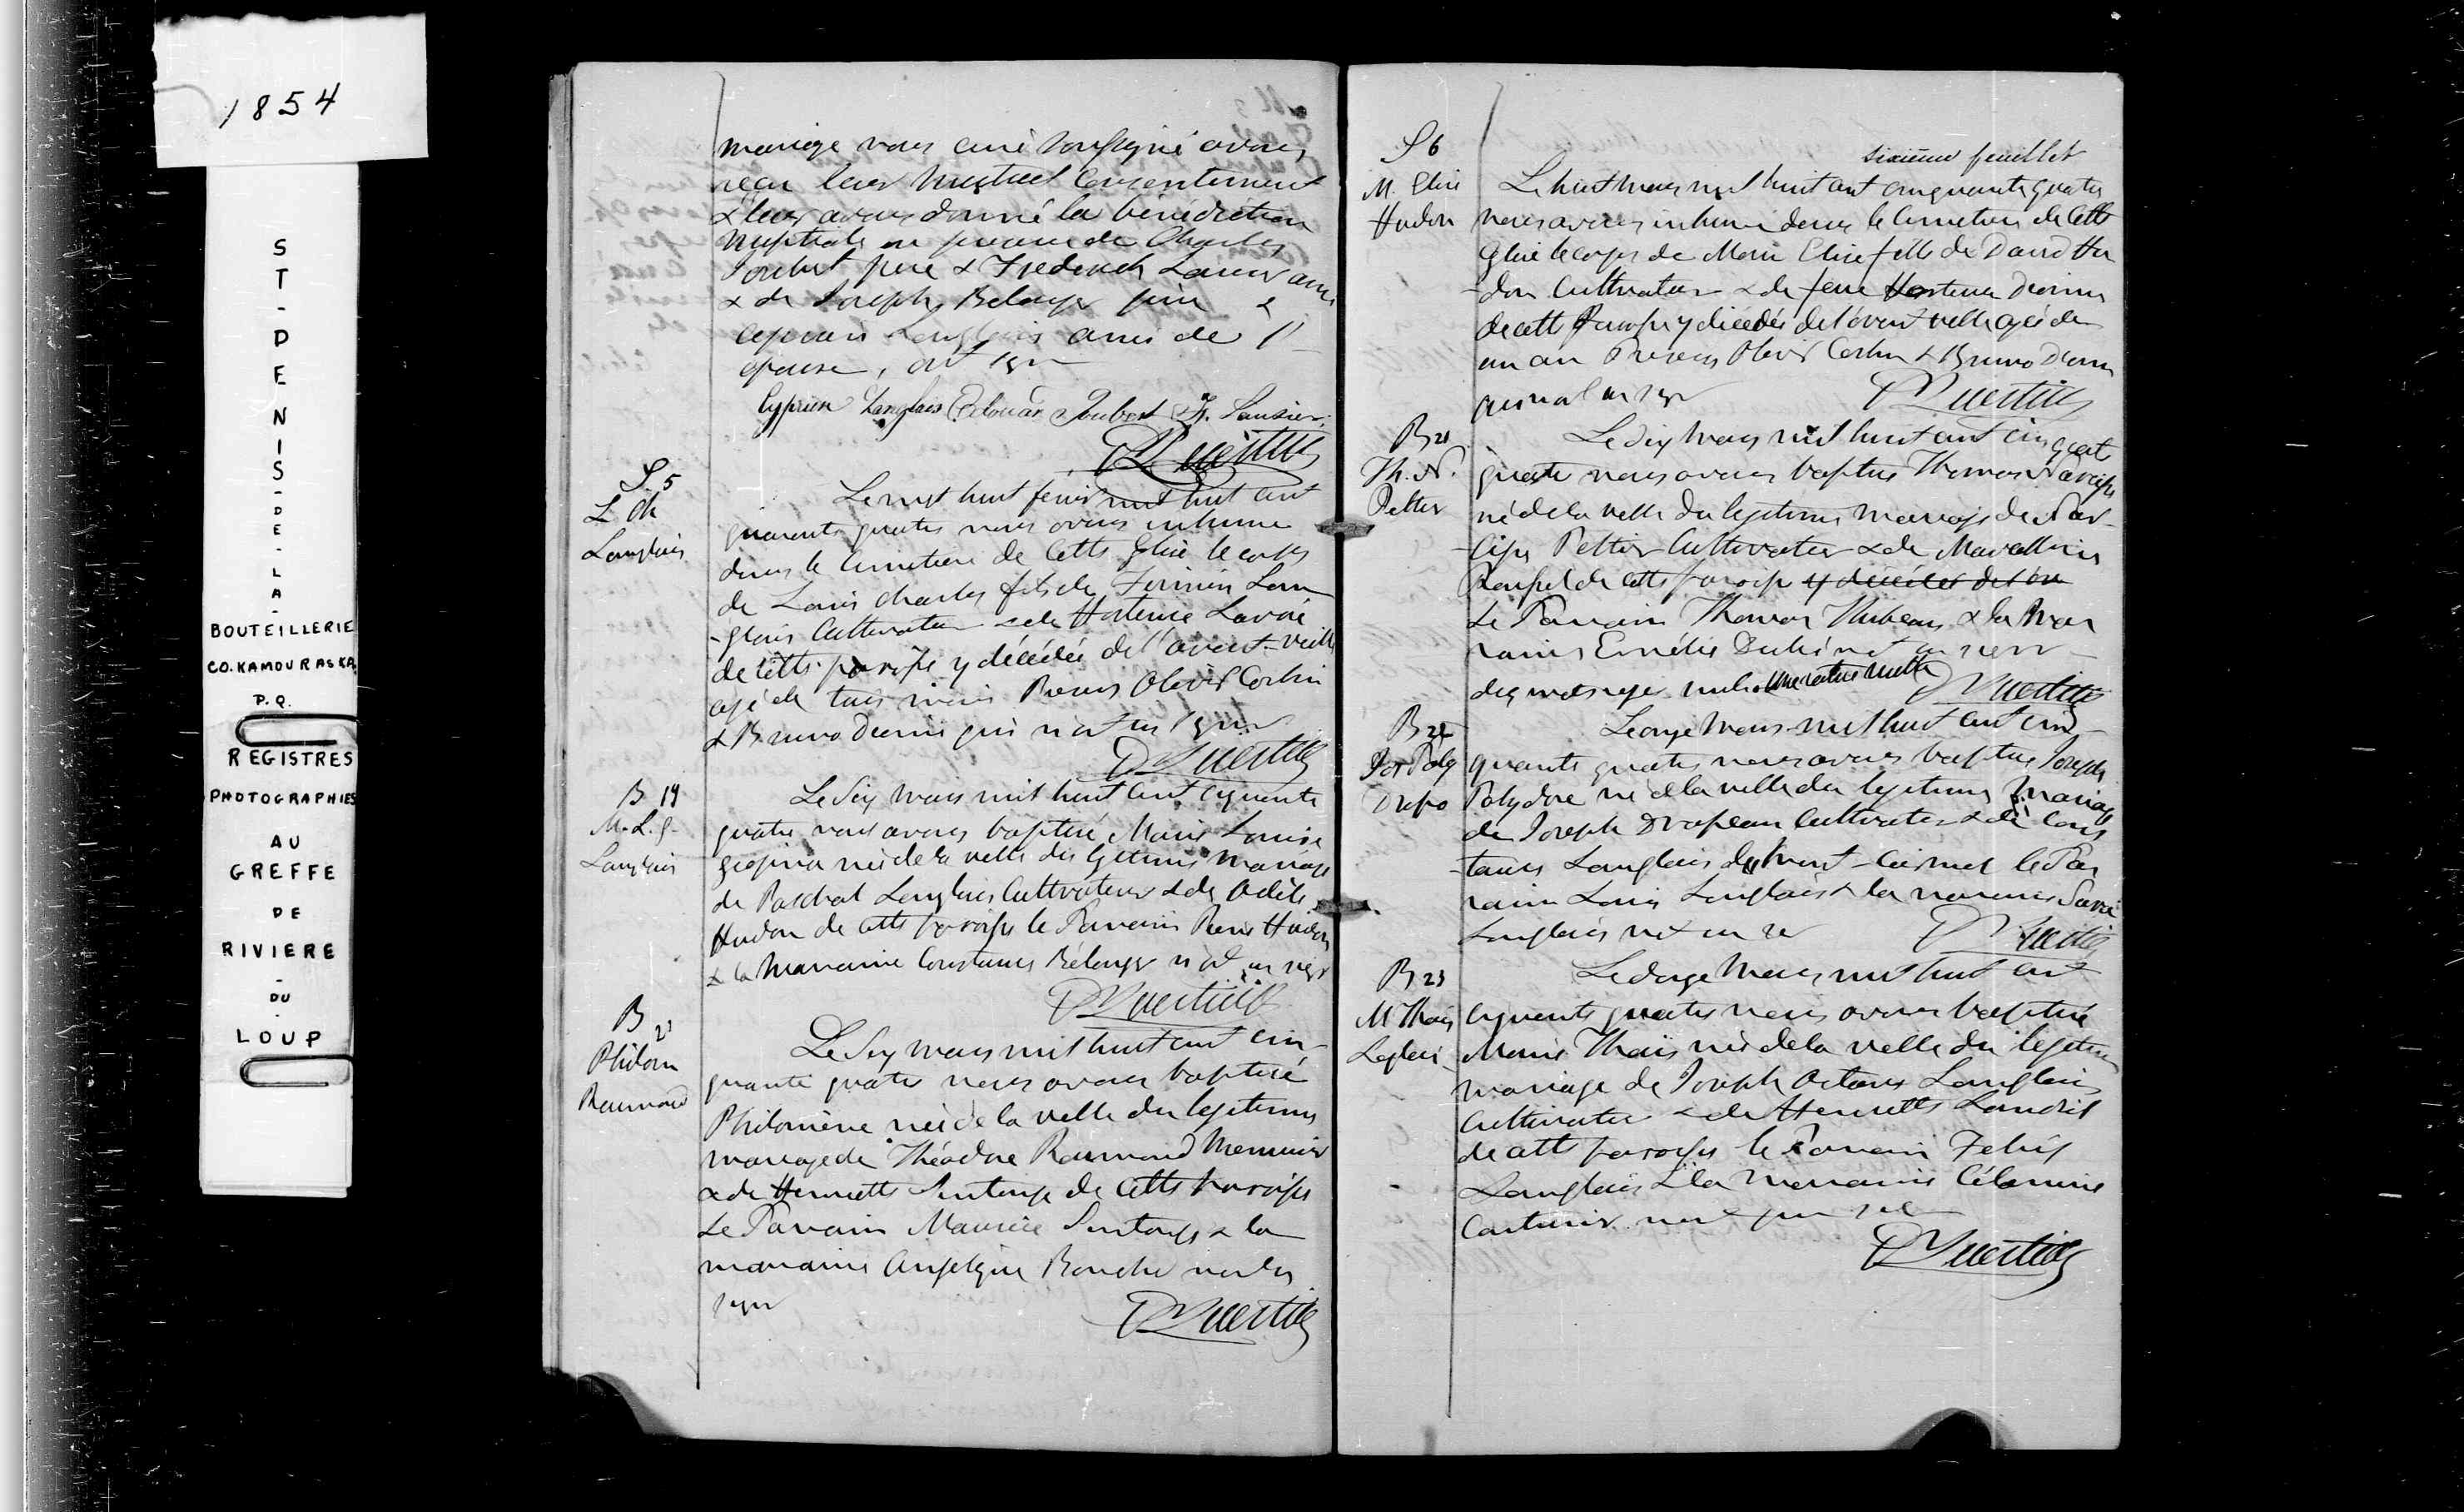 1854
ST-DENIS-DE-LA-
BOUTEILLERIE
CO. KAMOURASKA
P.Q.
REGISTRES
PHOTOGRAPHIES
AU
GREFFE
DE
RIVIERE
-
DU
-
LOUP
mariage nous curé soussigné avons
reçu leur mutuel consentement
& leur avons donné la bénédiction
nuptiale en presence de Charles
Joubert pere & Frederick amis
& de Joseph Belanger &
Langlais amis de l'
epouse, ont
Cyprien Langlais Edouard Joubert
S. 5
L Ch
Langlais
Le vingt huit huit cent
quarante quatre nous avons inhumé
dans le cimetiere de cette Eglise le corps
de Louis Charles fils de Firmin Lan
-glais Cultivateur & de Hortense Lavoie
de cette paroisse y décédée de l'avant-veille
agé de trois mois Presens Olivier Corbin
& Bruno Dionne qui n'ont su signer
B 19
M. L. G.
Langlais
Le Six mars mil huit cent cquante
quatre nous avons baptisé Marie Louise
née de la veille du legitime mariage
de Paschal Langlais Cultivateur & de Adèle
Hudon de cette paroisse le Parrain Hudon
& la Marraine Constance Bélanger n'ont su signer
B
Philom
Raimond
Le Six mars mil huit cent cin-
quante quatre nous avons baptisé
Philomène née de la veille du legitime
mariage de Théodore Raimond Menuisier
& de Henriette Sintonge de cette paroisse
Le Parrain Maurice Sintonge & la
marraine Angelique Bouché
signer
sixieme feuillet
S 6
M. Elise
Hudon
Le huit mars mil huit cent cinquante quatre
nous avons inhumé dans le cimetiere de cette
Eglise le corps de Marie Elise fille de David Hu
-don Cultivateur & de feue Hortense Dionne
de cette paroisse y décédée de l'avant veille agée de
un an Presens Olivier Corbin & Bruno Dionne
qui n'ont su signer
B 21
Th. N.
Peltier
Le dix mars mil huit cent cinquat
quatre nous avons baptisé Thomas Narcisse
né de la veille du legitime mariage de Nar-
-cisse Peltier Cultivateur & de
de cette paroisse y décédée de l'ava
Le Parrain Thomas & la Mar
raine Emélie Dubé n'ont su signer
B 22
Jos Poly
Drapo
Le onze mars mil huit cent cin-
quante quatre nous avons baptisé Joseph
Polydore né de la veille du legitime mariage
de Joseph Drapeau Cultivateur & de Cons
-tance Langlais du Mont-Carmel le Par
rain Louis Langlais & la marraine
Langlais n'ont su
B 23
M Thaïs
Langlais
Le douze Mars mil huit cent
cquante quatre nous avons baptisé
Marie Thaïs née de la veille du legitime
mariage de Joseph Octave Langlais
Cultivateur & de Henriette
de cette paroisse le Parrain Felix
Langlais & la Marraine Célanire